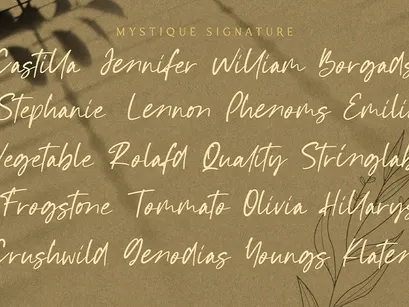 MYSTIQUE SIGNATURE
Castilla Jennifer William Borgads
Stephanie Lennon Phenoms Emili
Vegetable Rolafd Quality Stringlab
Frogstone Tommato Olivia Hillarys
Crushwild Genodias Youngs Klater